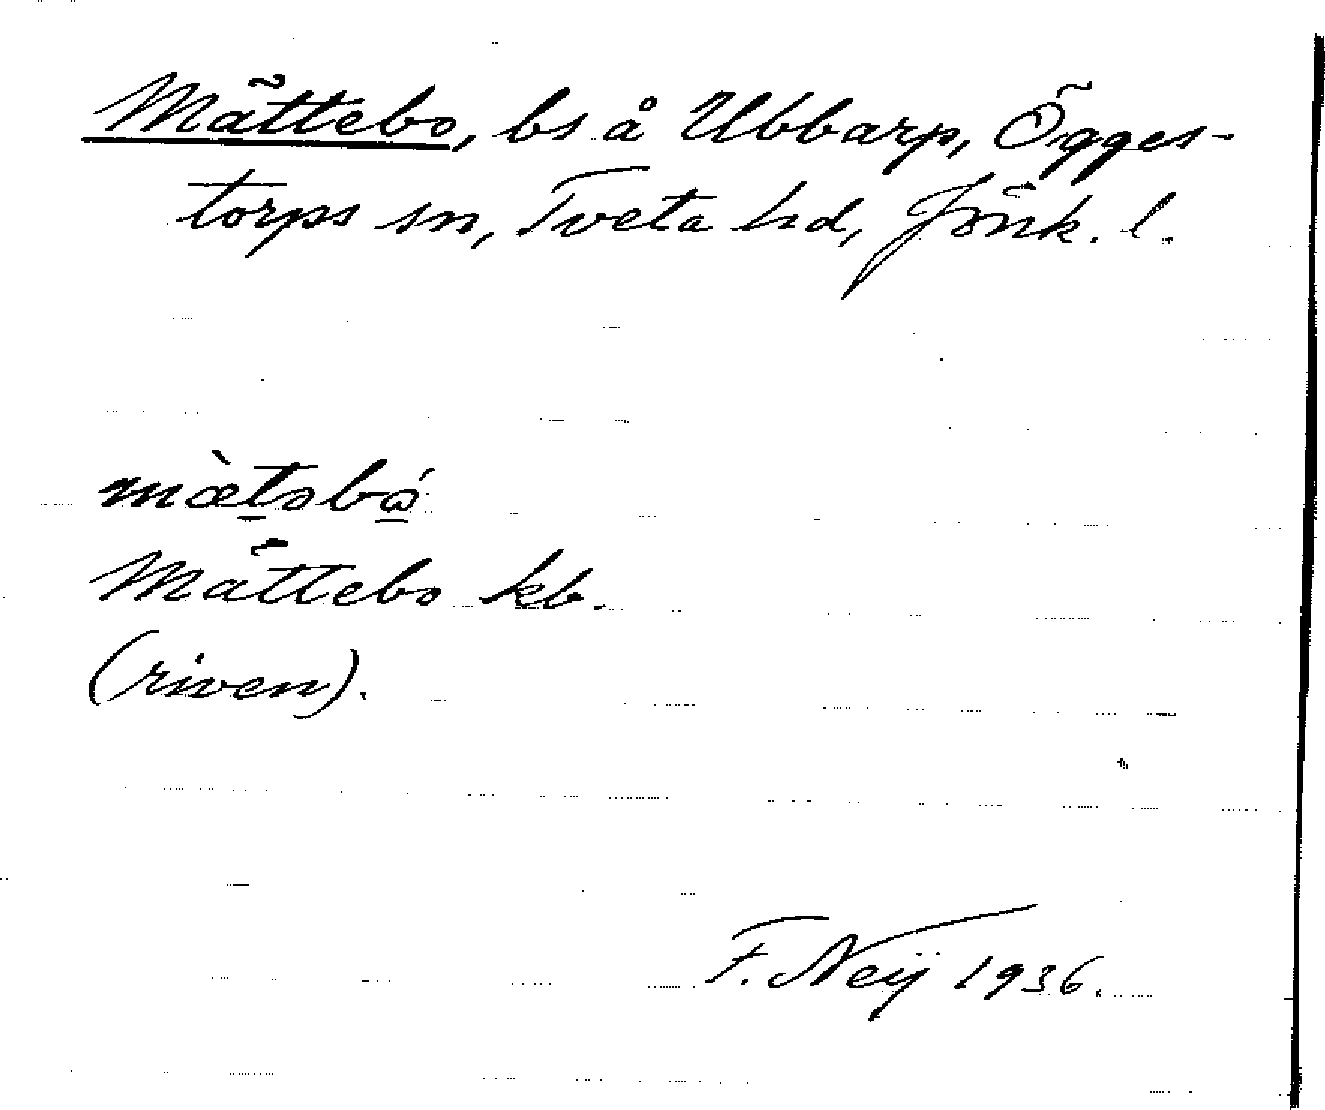 Mättebo, bs å Ubbarp, Ögges-
torps sn, Tveta hd, Jönk. l.
mæ̀t̲əbώ̲
Mättebo kb.
(riven).
F. Neij 1936.